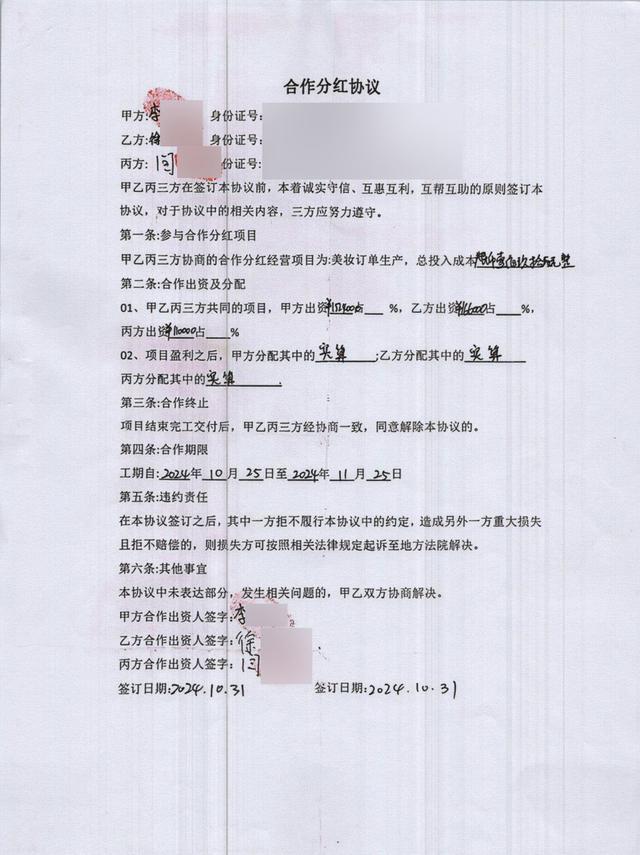 合作分红协议
甲方:李 身份证号:
乙方:徐 身份证号:
丙方:闫 份证号:
甲乙丙三方在签订本协议前，本着诚实守信、互惠互利，互帮互助的原则签订本
协议，对于协议中的相关内容，三方应努力遵守。
第一条:参与合作分红项目
甲乙丙三方协商的合作分红经营项目为:美妆订单生产，总投入成本
第二条:合作出资及分配
01、甲乙丙三方共同的项目，甲方出资 占___ %，乙方出资 占___%，
丙方出资 占___%
02、项目盈利之后，甲方分配其中的 实算 ;乙方分配其中的 实算
丙方分配其中的 实算 .
第三条:合作终止
项目结束完工交付后，甲乙丙三方经协商一致，同意解除本协议的。
第四条:合作期限
工期自:2024年 10 月 25日至 2024年 11 月 25日
第五条:违约责任
在本协议签订之后，其中一方拒不履行本协议中的约定，造成另外一方重大损失
且拒不赔偿的，则损失方可按照相关法律规定起诉至地方法院解决。
第六条:其他事宜
本协议中未表达部分，发生相关问题的，甲乙双方协商解决。
甲方合作出资人签字:李
乙方合作出资人签字:徐
丙方合作出资人签字:闫
签订日期:2024.10.31 签订日期:2024.10.31